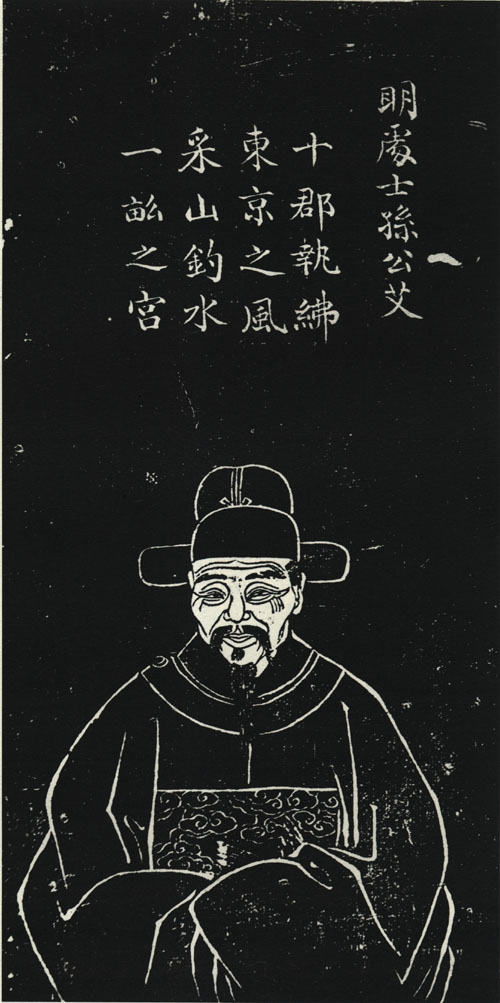 明處士孫公艾
十郡執紼
東京之風
采山釣水
一畝之宮